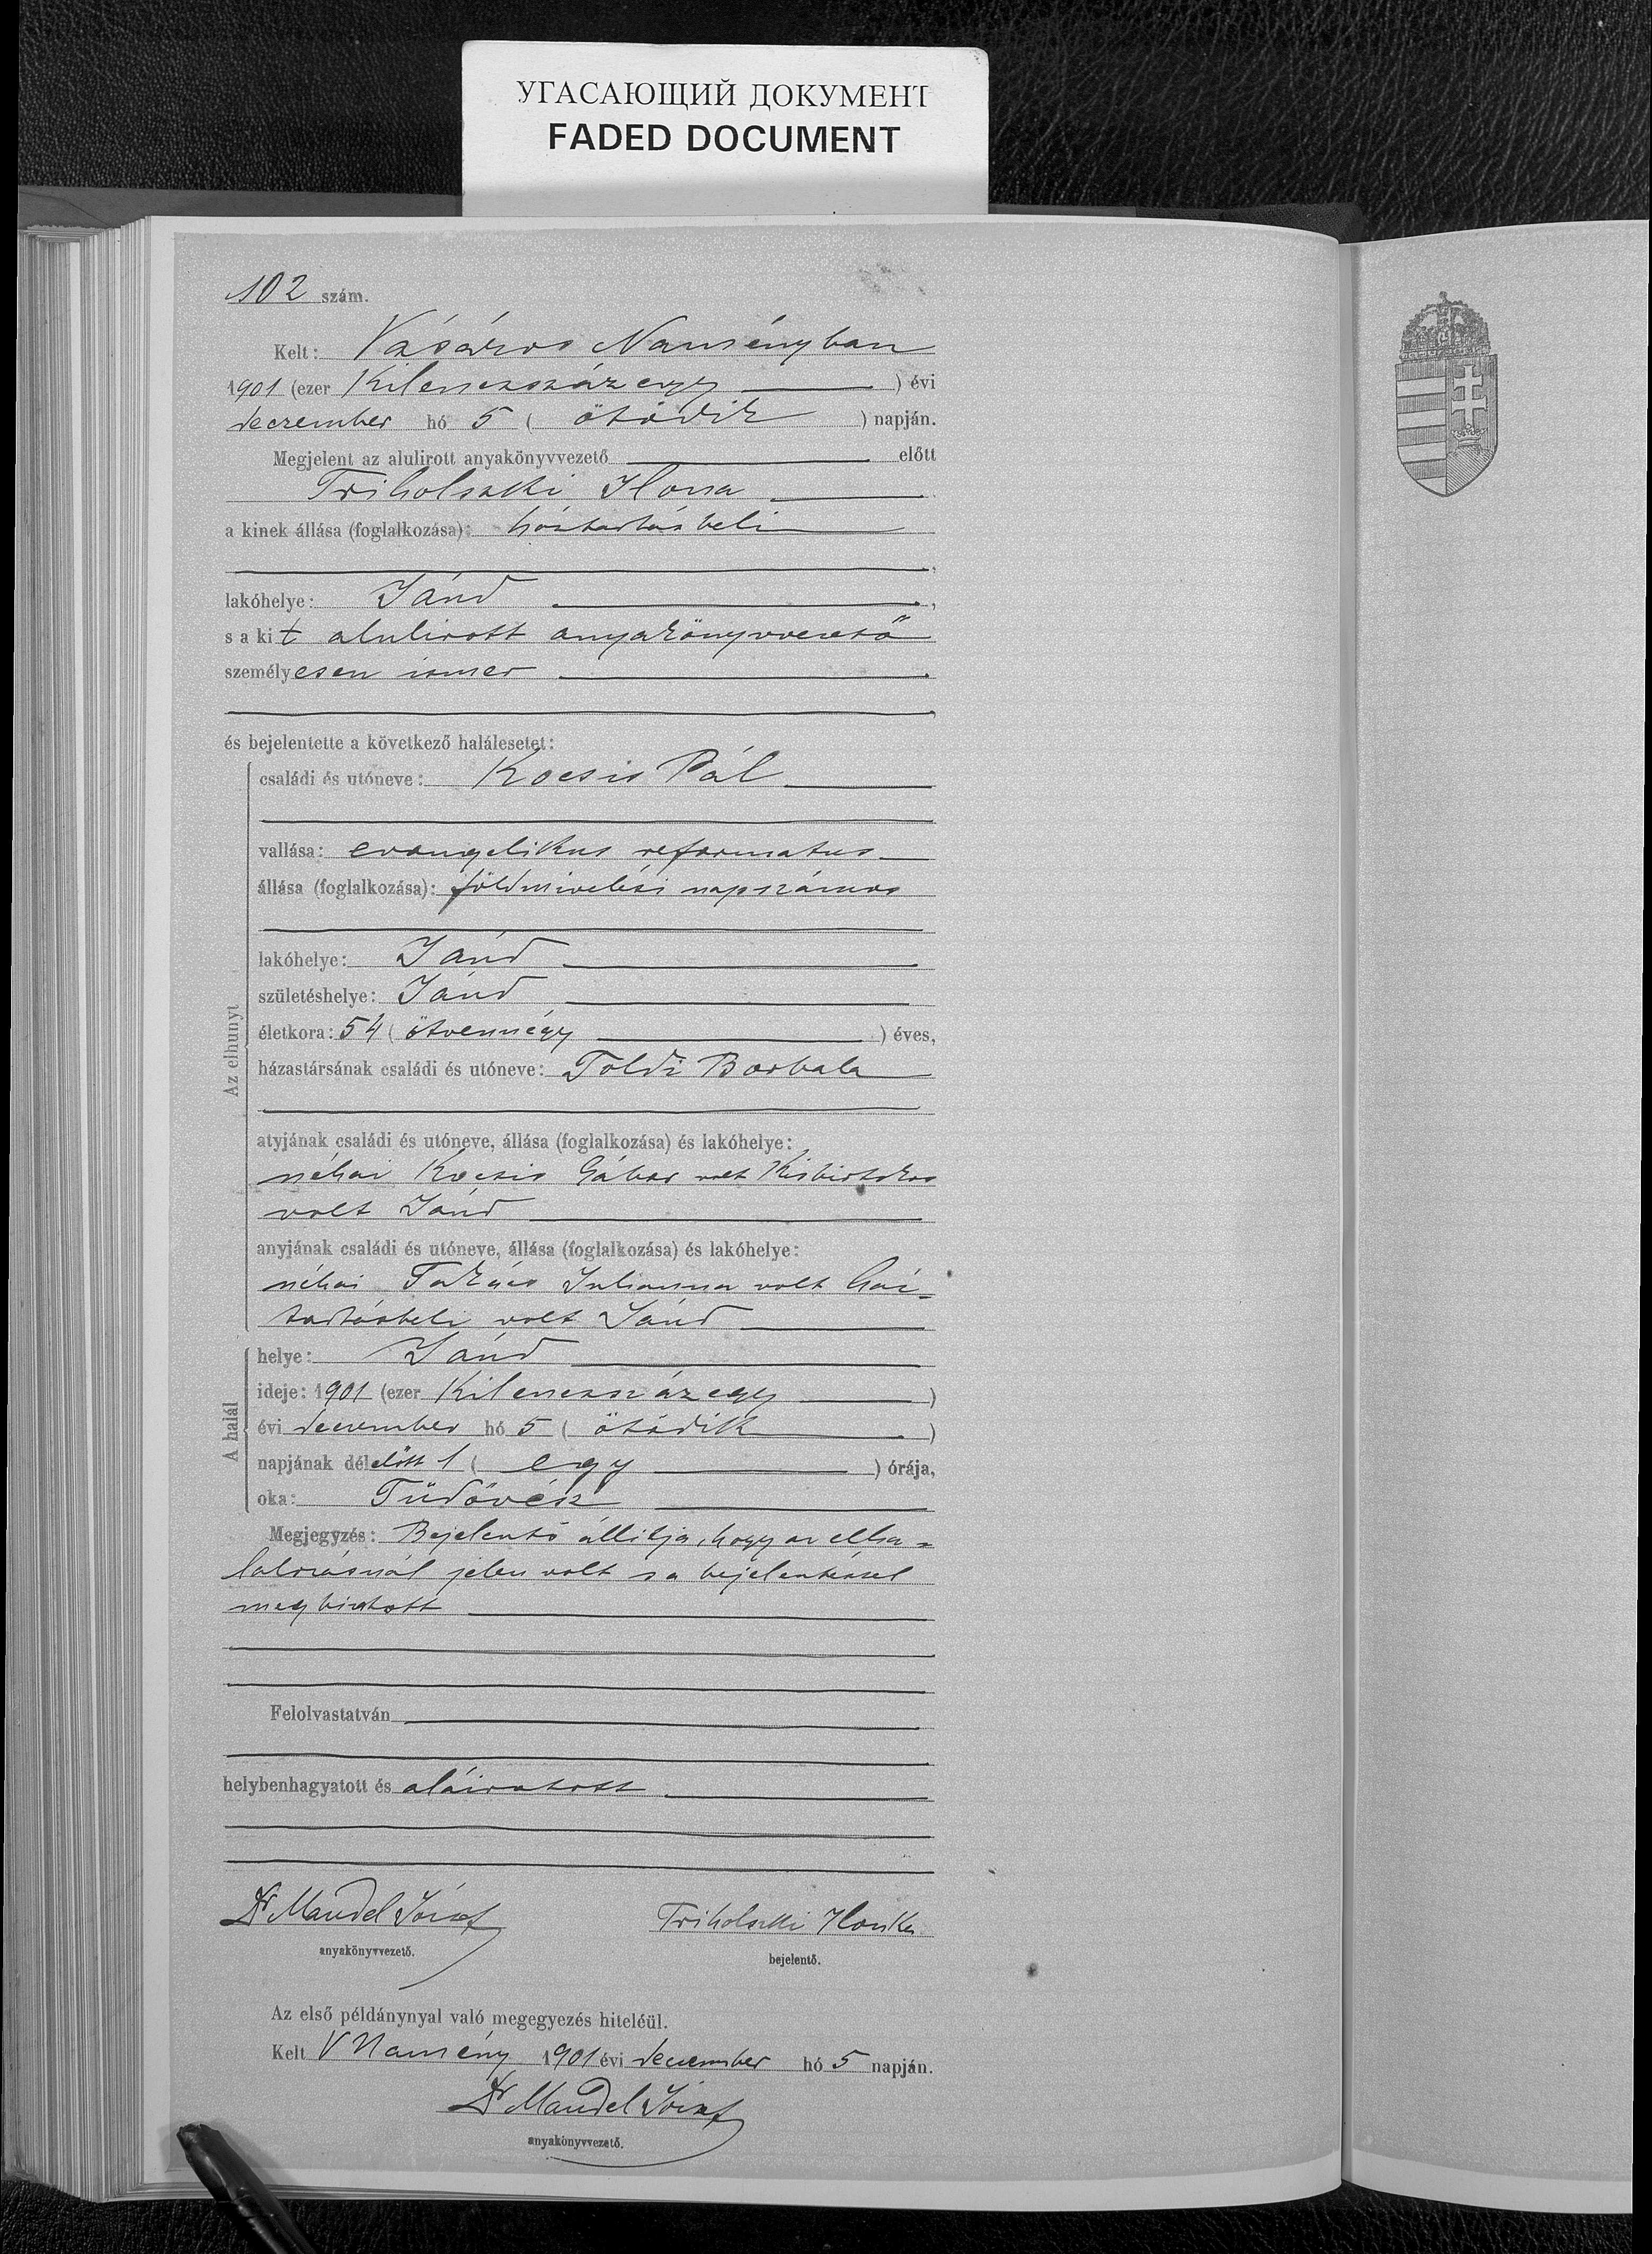 УГАСАЮЩИЙ ДОКУМЕНТ
FADED DOCUMENT
102 szám.
Kelt: Vásáros Naményban
1901 (ezer kilenczszázegy ) évi
deczember hó 5 ( ötödik ) napján.
Megjelent az alulirott anyakönyvvezető előtt
Triholszki Ilona
a kinek állása (foglalkozása): háztartásbeli
lakóhelye: Jánd
s a kit alulirott anyakönyvvezető
személyesen ismer
és bejelentette a következő halálesetet:
Az elhunyt
családi és utóneve: Kocsis Pál
vallása: evangelikus reformatus
állása (foglalkozása): földmivelési napszámos
lakóhelye: Jánd
születéshelye: Jánd
életkora: 54 ( ötvennégy ) éves,
házastársának családi és utóneve: Toldi Borbala
atyjának családi és utóneve, állása (foglalkozása) és lakóhelye:
néhai Kocsis Gábor volt kisbirtokos
volt Jánd
anyjának családi és utóneve, állása (foglalkozása) és lakóhelye:
néhai Takács Julianna volt ház-
tartásbeli volt Jánd
A halál
helye: Jánd
ideje: 1901 (ezer kilenczszázegy )
évi deczember hó 5 ( ötödik )
napjának délelőtt 1 ( egy ) órája,
oka: Tüdővész
Megjegyzés: Bejelentő állitja, hogy az elha-
lálozásnál jelen volt s a bejelentéssel
megbizatott
Felolvastatván
helybenhagyatott és aláiratott
Dr Mandel József
anyakönyvvezető.
Triholszki Ilonka
bejelentő.
Az első példánynyal való megegyezés hiteléül.
Kelt V Namény 1901 évi deczember hó 5 napján.
Dr Mandel József
anyakönyvvezető.